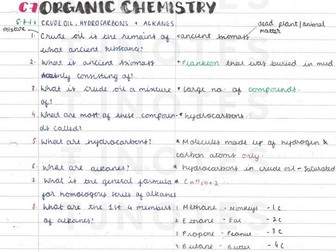 C7 ORGANIC CHEMISTRY
5.7.1.1 CRUDE OIL, HYDROCARBONS + ALKANES
dead plant/animal matter
mixture
1. Crude oil is the remains of what ancient biomass? ancient biomass
2. What is ancient biomass mainly consisting of? Plankton that was buried in mud
3. What is crude oil a mixture of? large no. of compounds.
4. What are most of these compounds called? hydrocarbons
5. What are hydrocarbons? Molecules made up of hydrogen & carbon atoms only.
6. What are alkanes? hydrocarbons in crude oil - saturated
7. What is the general formula for homologous series of alkanes? CnH2n+2
8. What are the 1st 4 members of alkanes?
1 Methane - Monkeys - 1c
2 Ethane - Eat - 2c
3 Propane - Peanut - 3c
4 Butane - Butter - 4c